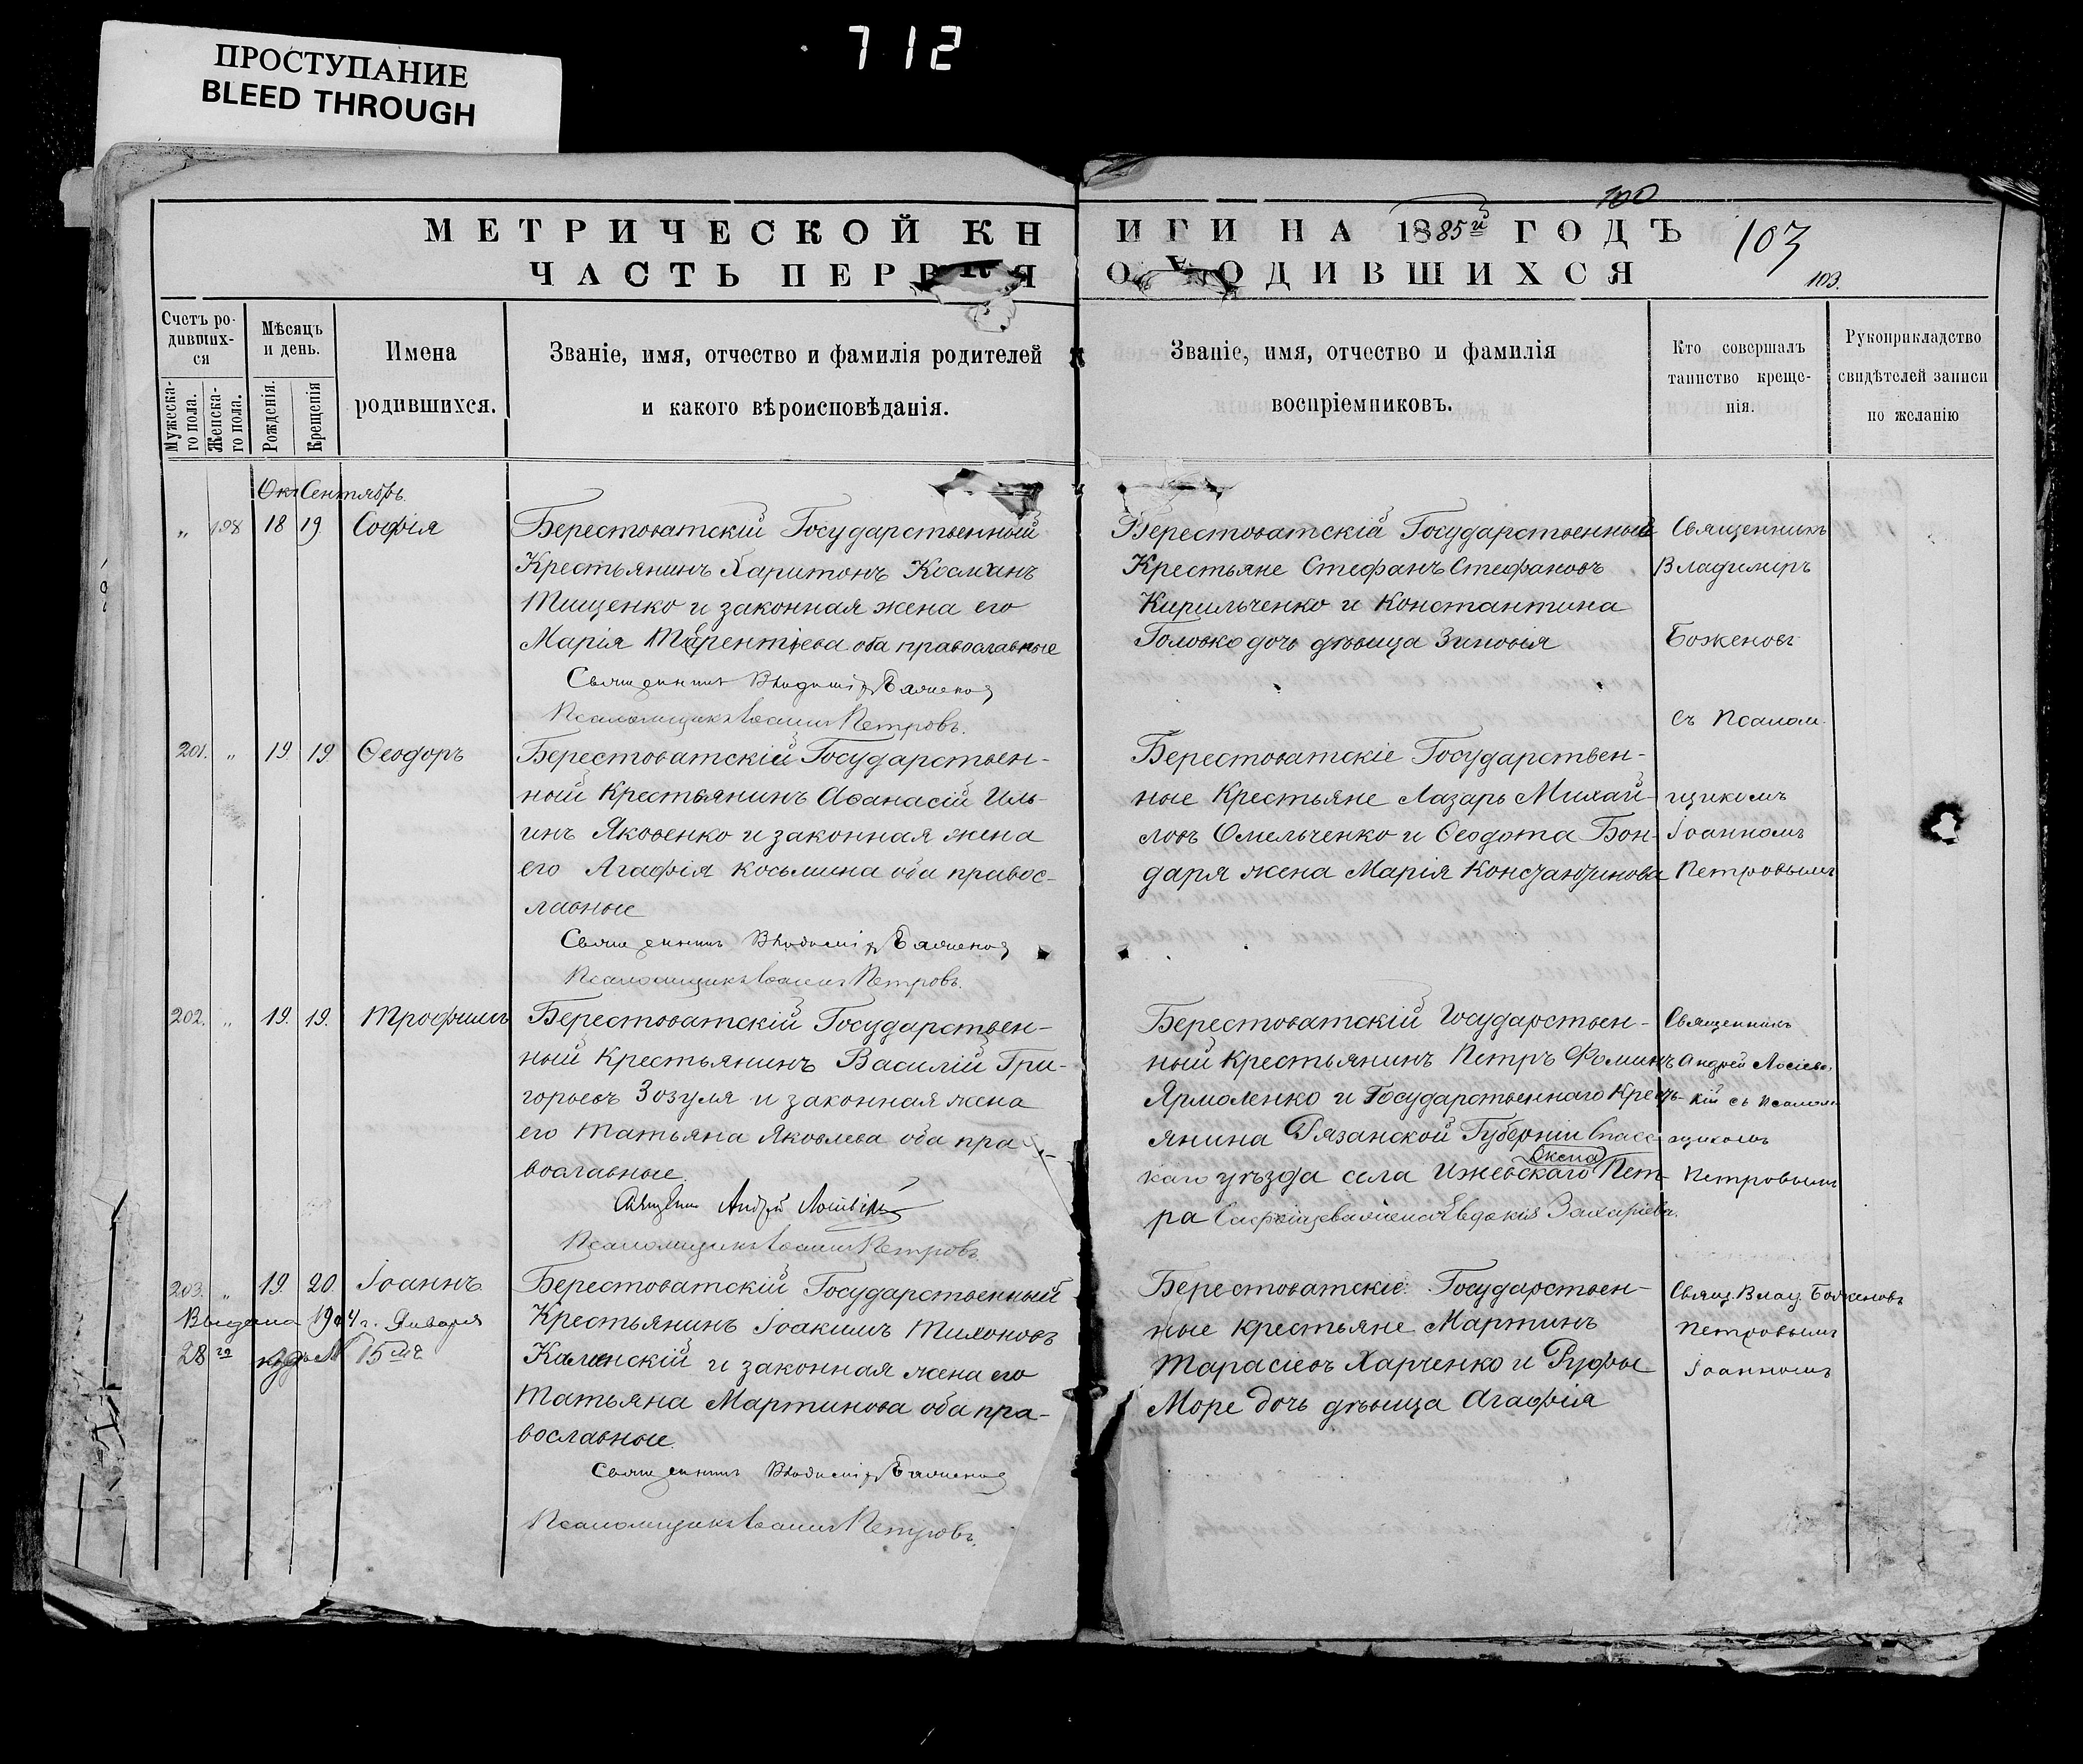 712
ПРОСТУПАНИЕ
BLEED THROUGH
100
МЕТРИЧЕСКОЙ КН
ИГИ НА 1885й ГОДЪ
103
ЧАСТЬ ПЕРВАЯ
О РОДИВШИХСЯ
103.
Счетъ ро-
дивших-
ся
Мужеска-
го пола.
Женска-
го пола.
Мѣсяцъ
и день.
Рожденія.
Крещенія
Имена
родившихся.
Званіе, имя, отчество и фамилія родителей
и какого вѣроисповѣданія.
Званіе, имя, отчество и фамилія
воспріемниковъ.
Кто совершалъ
таинство креще-
нія.
Рукоприкладство
свидѣтелей записи
по желанію
Сентябрь.
„ 198 18 19. Софія
Берестоватскій Государственный
Крестьянинъ Харитонъ
Тищенко и законная жена его
Марія Терентіева оба православные
Священникъ Владиміръ Боженов
Псаломщикъ Іоаннъ Петровъ.
Берестоватскій Государственный
Крестьяне Стефанъ Стефановъ
Кирильченко и Константина
Головко дочь дѣвица Зиновія
Священникъ
Владиміръ
Боженовъ
съ Псалом-
201. „ 19. 19. Ѳеодоръ
Берестоватскій Государствен-
ный Крестьянинъ Аѳанасій Иль-
инъ Яковенко и законная жена
его Агафія Косьмина оба правос-
лавные
Священникъ Владиміръ Боженов
Псаломщикъ Іоаннъ Петровъ.
Берестоватскіе Государствен-
ные Крестьяне Лазарь Михай-
ловъ Омельченко и Ѳеодота Бон-
даря жена Марія Константинова
щикомъ
Іоанномъ
Петровымъ
202. „ 19. 19. Трофимъ
Берестоватскій Государствен-
ный Крестьянинъ Василій Гри-
горьевъ Зозуля и законная жена
его Татьяна Яковлева оба пра-
вославные.
Священникъ Андрей
Псаломщикъ Іоаннъ Петровъ.
Берестоватскій Государствен-
ный Крестьянинъ Петръ Фоминъ
Ярмоленко и Государственнаго Кресть-
янина Рязанской Губерніи Спасс-
каго уѣзда села Ижевскаго Пет-
ра жена Евдокія Захаріева.
Священникъ
Андрей
кій съ Псалом-
щикомъ
Петровымъ
203. „ 19. 20. Іоаннъ
Выдана 1904 г. Января
28го № 15
Берестоватскій Государственный
Крестьянинъ Іоакимъ Тихоновъ
Каменскій и законная жена его
Татьяна Мартинова оба пра-
вославные.
Священникъ Владиміръ Боженов
Псаломщикъ Іоаннъ Петровъ.
Берестоватскіе Государствен-
ные крестьяне Мартинъ
Тарасіевъ Харченко и Руфы
Море дочь дѣвица Агафія
Свящ. Влад. Боженовъ
Петровымъ
Іоанномъ